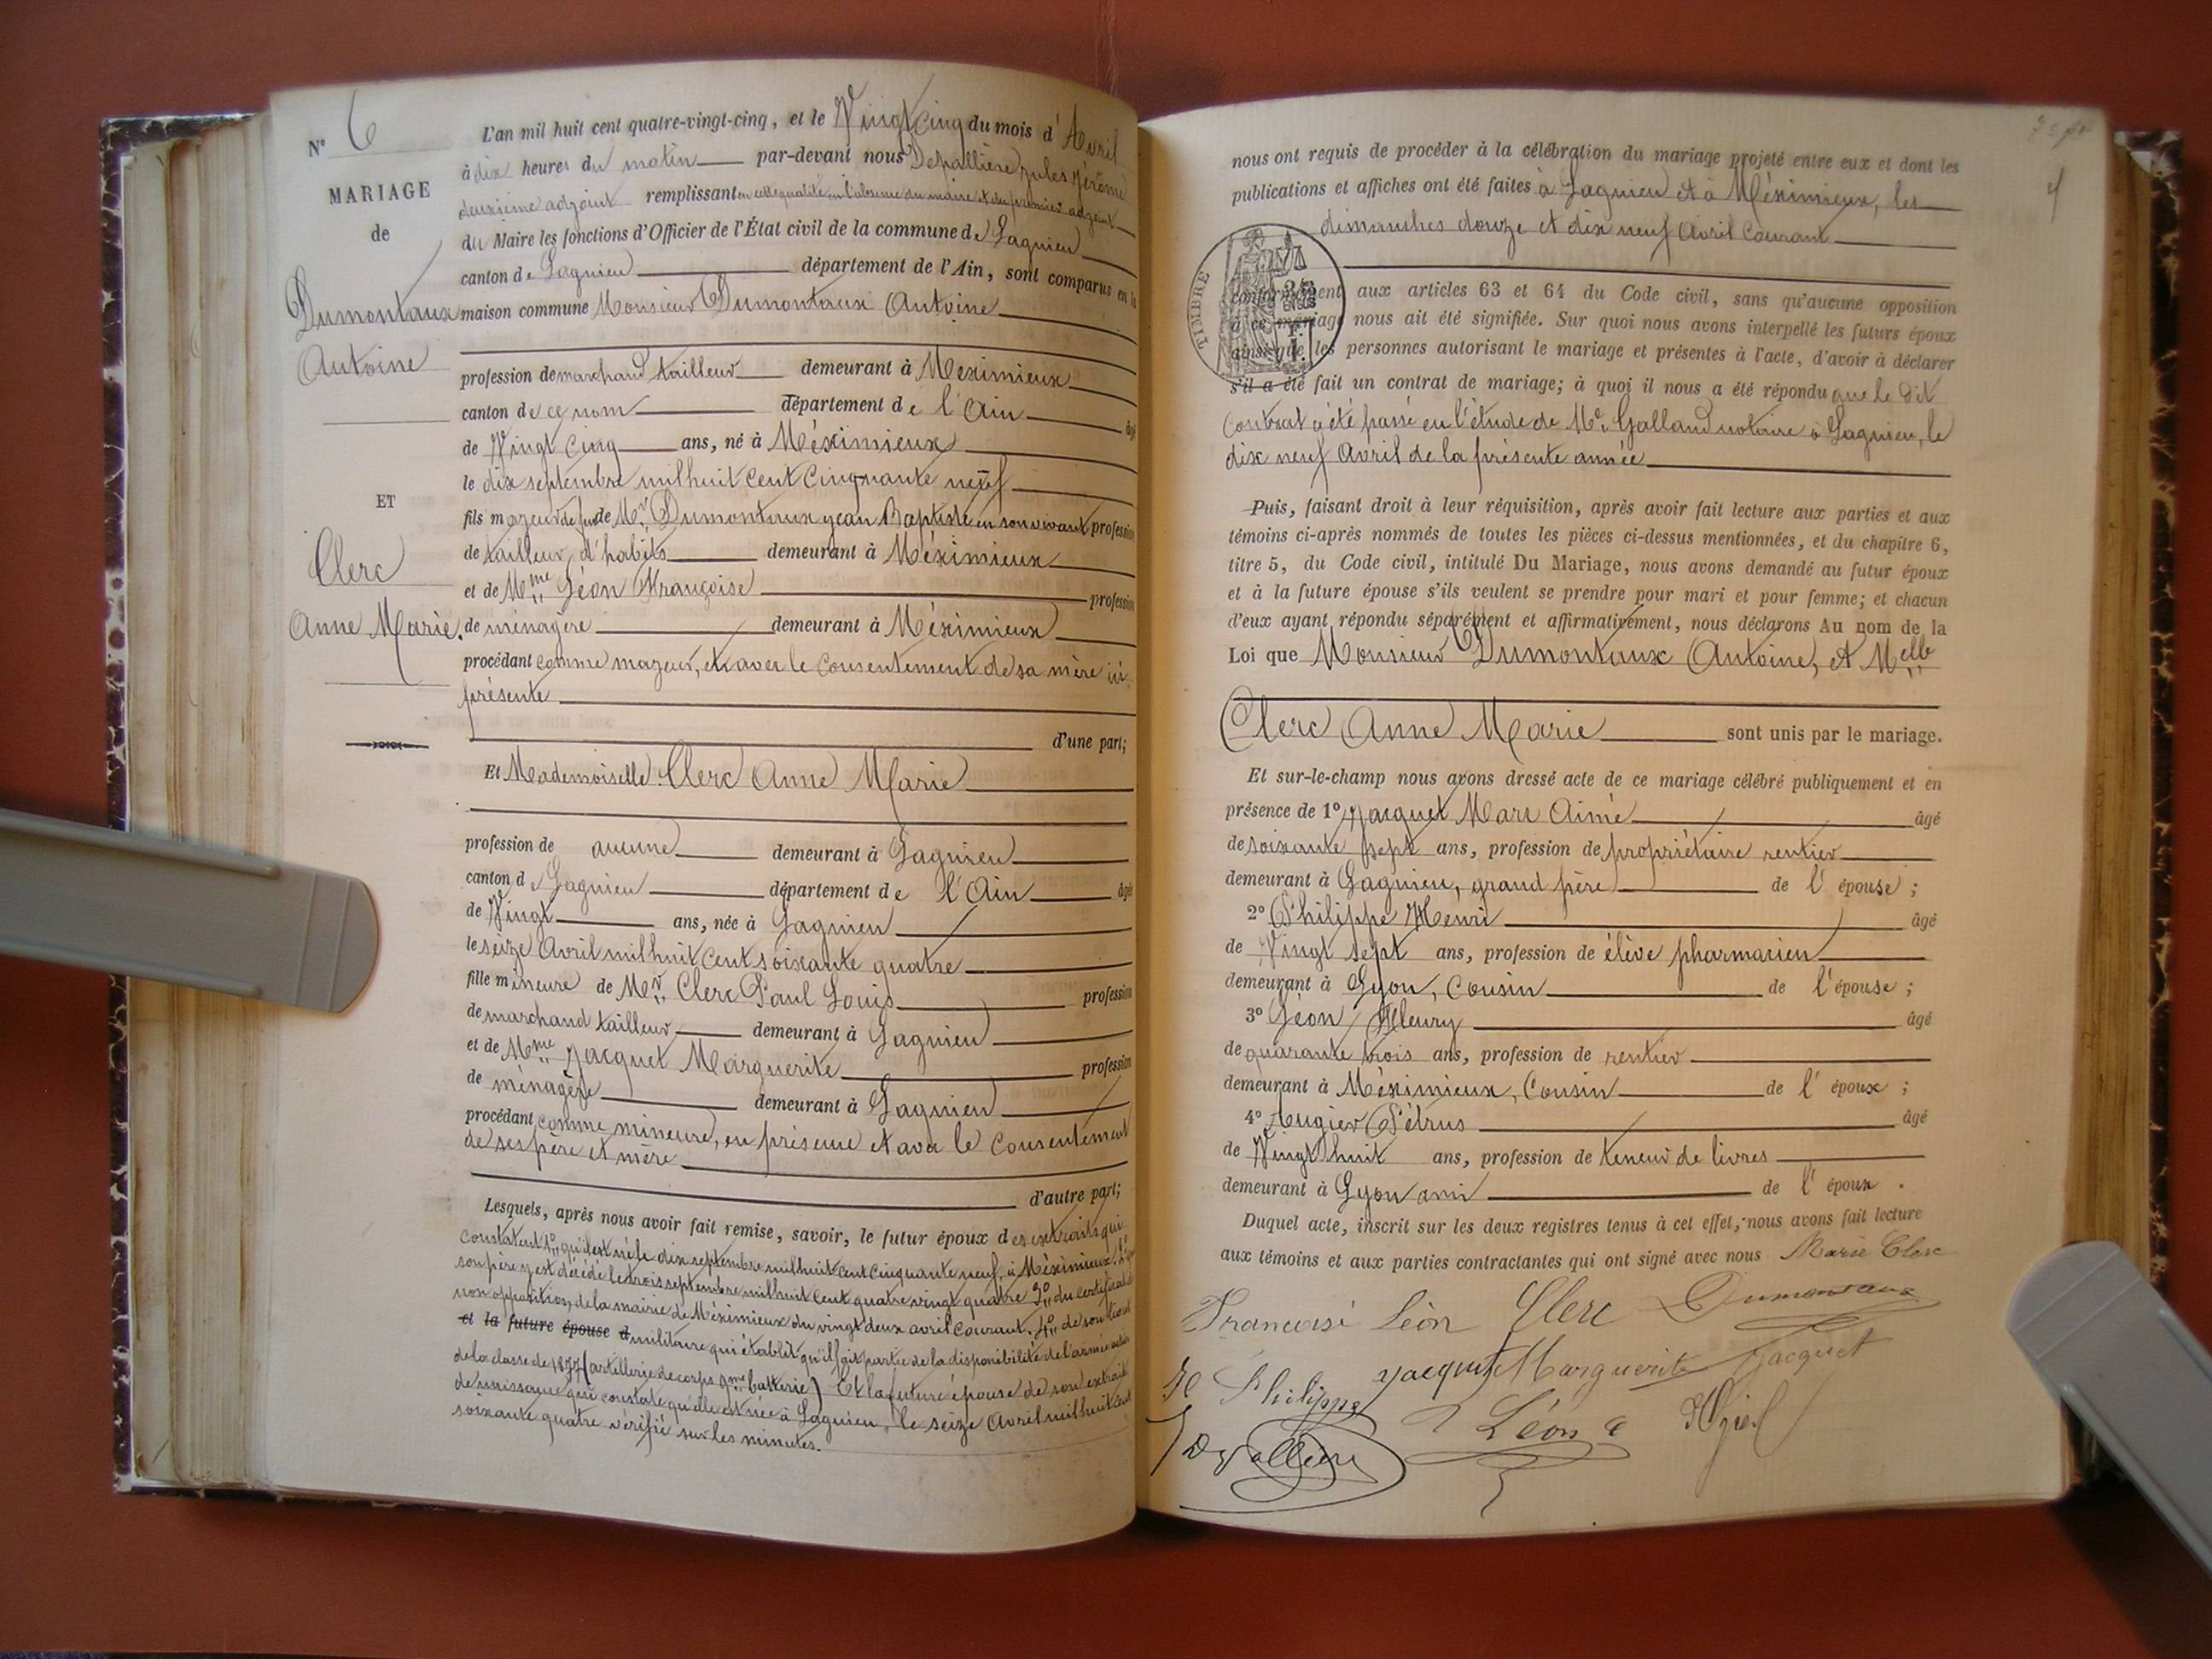 N° 6
MARIAGE
de
Dumontaux
Antoine
ET
Clerc
Anne Marie.
L'an mil huit cent quatre-vingt-cinq, et le Vingt cinq du mois d'Avril
à dix heures du matin par-devant nous Depallière Jules Jérôme
deuxième adjoint remplissant en cette qualité en l'absence du maire et du premier adjoint
du Maire les fonctions d'Officier de l'État civil de la commune de Lagnieu
canton de Lagnieu département de l'Ain, sont comparus en la
maison commune Monsieur Dumontaux Antoine
profession de marchand tailleur demeurant à Meximieux
canton de ce nom département de l'Ain âgé
de Vingt cinq ans, né à Méximieux
le dix septembre mil huit cent cinquante neuf
fils majeur de feu de Mr Dumontaux Jean Baptiste en son vivant profession
de tailleur d'habits demeurant à Méximieux
et de Mme Léon Françoise profession
de ménagère demeurant à Méximieux
procédant comme majeur, et avec le consentement de sa mère ici
présente
d'une part;
Et Mademoiselle Clerc Anne Marie
profession de aucune demeurant à Lagnieu
canton de Lagnieu département de l'Ain âgé
de Vingt ans, née à Lagnieu
le seize Avril mil huit cent soixante quatre
fille mineure de Mr Clerc Paul Louis profession
de marchand tailleur demeurant à Lagnieu
et de Mme Jacquet Marguerite profession
de ménagère demeurant à Lagnieu
procédant comme mineure, en présence et avec le consentement
de ses père et mère
d'autre part;
Lesquels, après nous avoir fait remise, savoir, le futur époux des extraits qui
constatent 1° qu'il est né le dix septembre mil huit cent cinquante neuf, à Méximieux! 2° que
son père y est décédé le trois septembre mil huit cent quatre vingt quatre 3° du certificat de
non opposition de la mairie de Méximieux du vingt deux avril courant. 4° de son livret
et la future épouse d militaire qui établit qu'il fait partie de la disponibilité de l'armée active
de la classe de 1877 (artillerie de corps 9me batterie) Et la future épouse de son extrait
de naissance qui constate qu'elle est née à Lagnieu, le seize Avril mil huit cent
soixante quatre vérifié sur les minutes.
4
nous ont requis de procéder à la célébration du mariage projeté entre eux et dont les
publications et affiches ont été faites à Lagnieu et à Méximieux, les
dimanches douze et dix neuf Avril courant
TIMBRE
conformément aux articles 63 et 64 du Code civil, sans qu'aucune opposition
à ce mariage nous ait été signifiée. Sur quoi nous avons interpellé les futurs époux
ainsi que les personnes autorisant le mariage et présentes à l'acte, d'avoir à déclarer
s'il a été fait un contrat de mariage; à quoi il nous a été répondu que le dit
contrat a été passé en l'étude de Me Galland notaire à Lagnieu, le
dix neuf Avril de la présente année
Puis, faisant droit à leur réquisition, après avoir fait lecture aux parties et aux
témoins ci-après nommés de toutes les pièces ci-dessus mentionnées, et du chapitre 6,
titre 5, du Code civil, intitulé Du Mariage, nous avons demandé au futur époux
et à la future épouse s'ils veulent se prendre pour mari et pour femme; et chacun
d'eux ayant répondu séparément et affirmativement, nous déclarons Au nom de la
Loi que Monsieur Dumontaux Antoine, et Melle
Clerc Anne Marie sont unis par le mariage.
Et sur-le-champ nous avons dressé acte de ce mariage célébré publiquement et en
présence de 1° Jacquet Marc Aimé âgé
de soixante sept ans, profession de propriétaire rentier
demeurant à Lagnieu, grand père de l'épouse;
2° Philippe Henri âgé
de Vingt sept ans, profession de élève pharmacien
demeurant à Lyon, Cousin de l'épouse;
3° Léon Fleury âgé
de quarante trois ans, profession de rentier
demeurant à Méximieux, Cousin de l'époux;
4° Augier Pétrus âgé
de Vingt huit ans, profession de teneur de livres
demeurant à Lyon ami de l'époux.
Duquel acte, inscrit sur les deux registres tenus à cet effet, nous avons fait lecture
aux témoins et aux parties contractantes qui ont signé avec nous Marie Clerc
Francoise Léon Clerc Dumontaux
H Philippe Jacquet Marguerite Jacquet
Depallière Léon